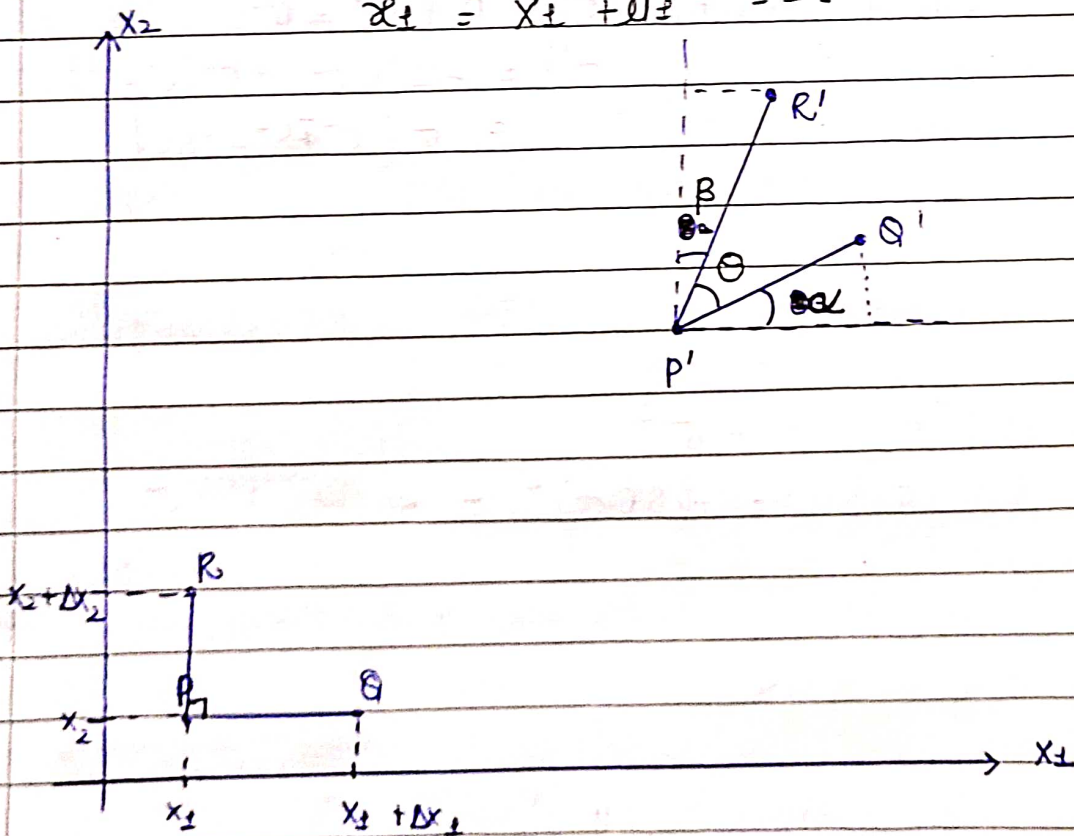 x1 = X1 + U1
X2
R'
β
Q'
θ
α
P'
R
X2 + ΔX2
P
Q
X2
X1
X1
X1 + ΔX1